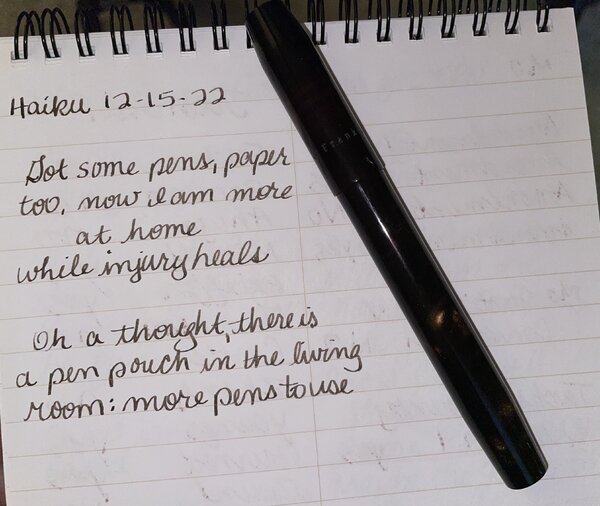 Haiku 12-15-22
Got some pens, paper
too, now I am more
at home
while injury heals
Oh a thought, there is
a pen pouch in the living
room: more pens to use